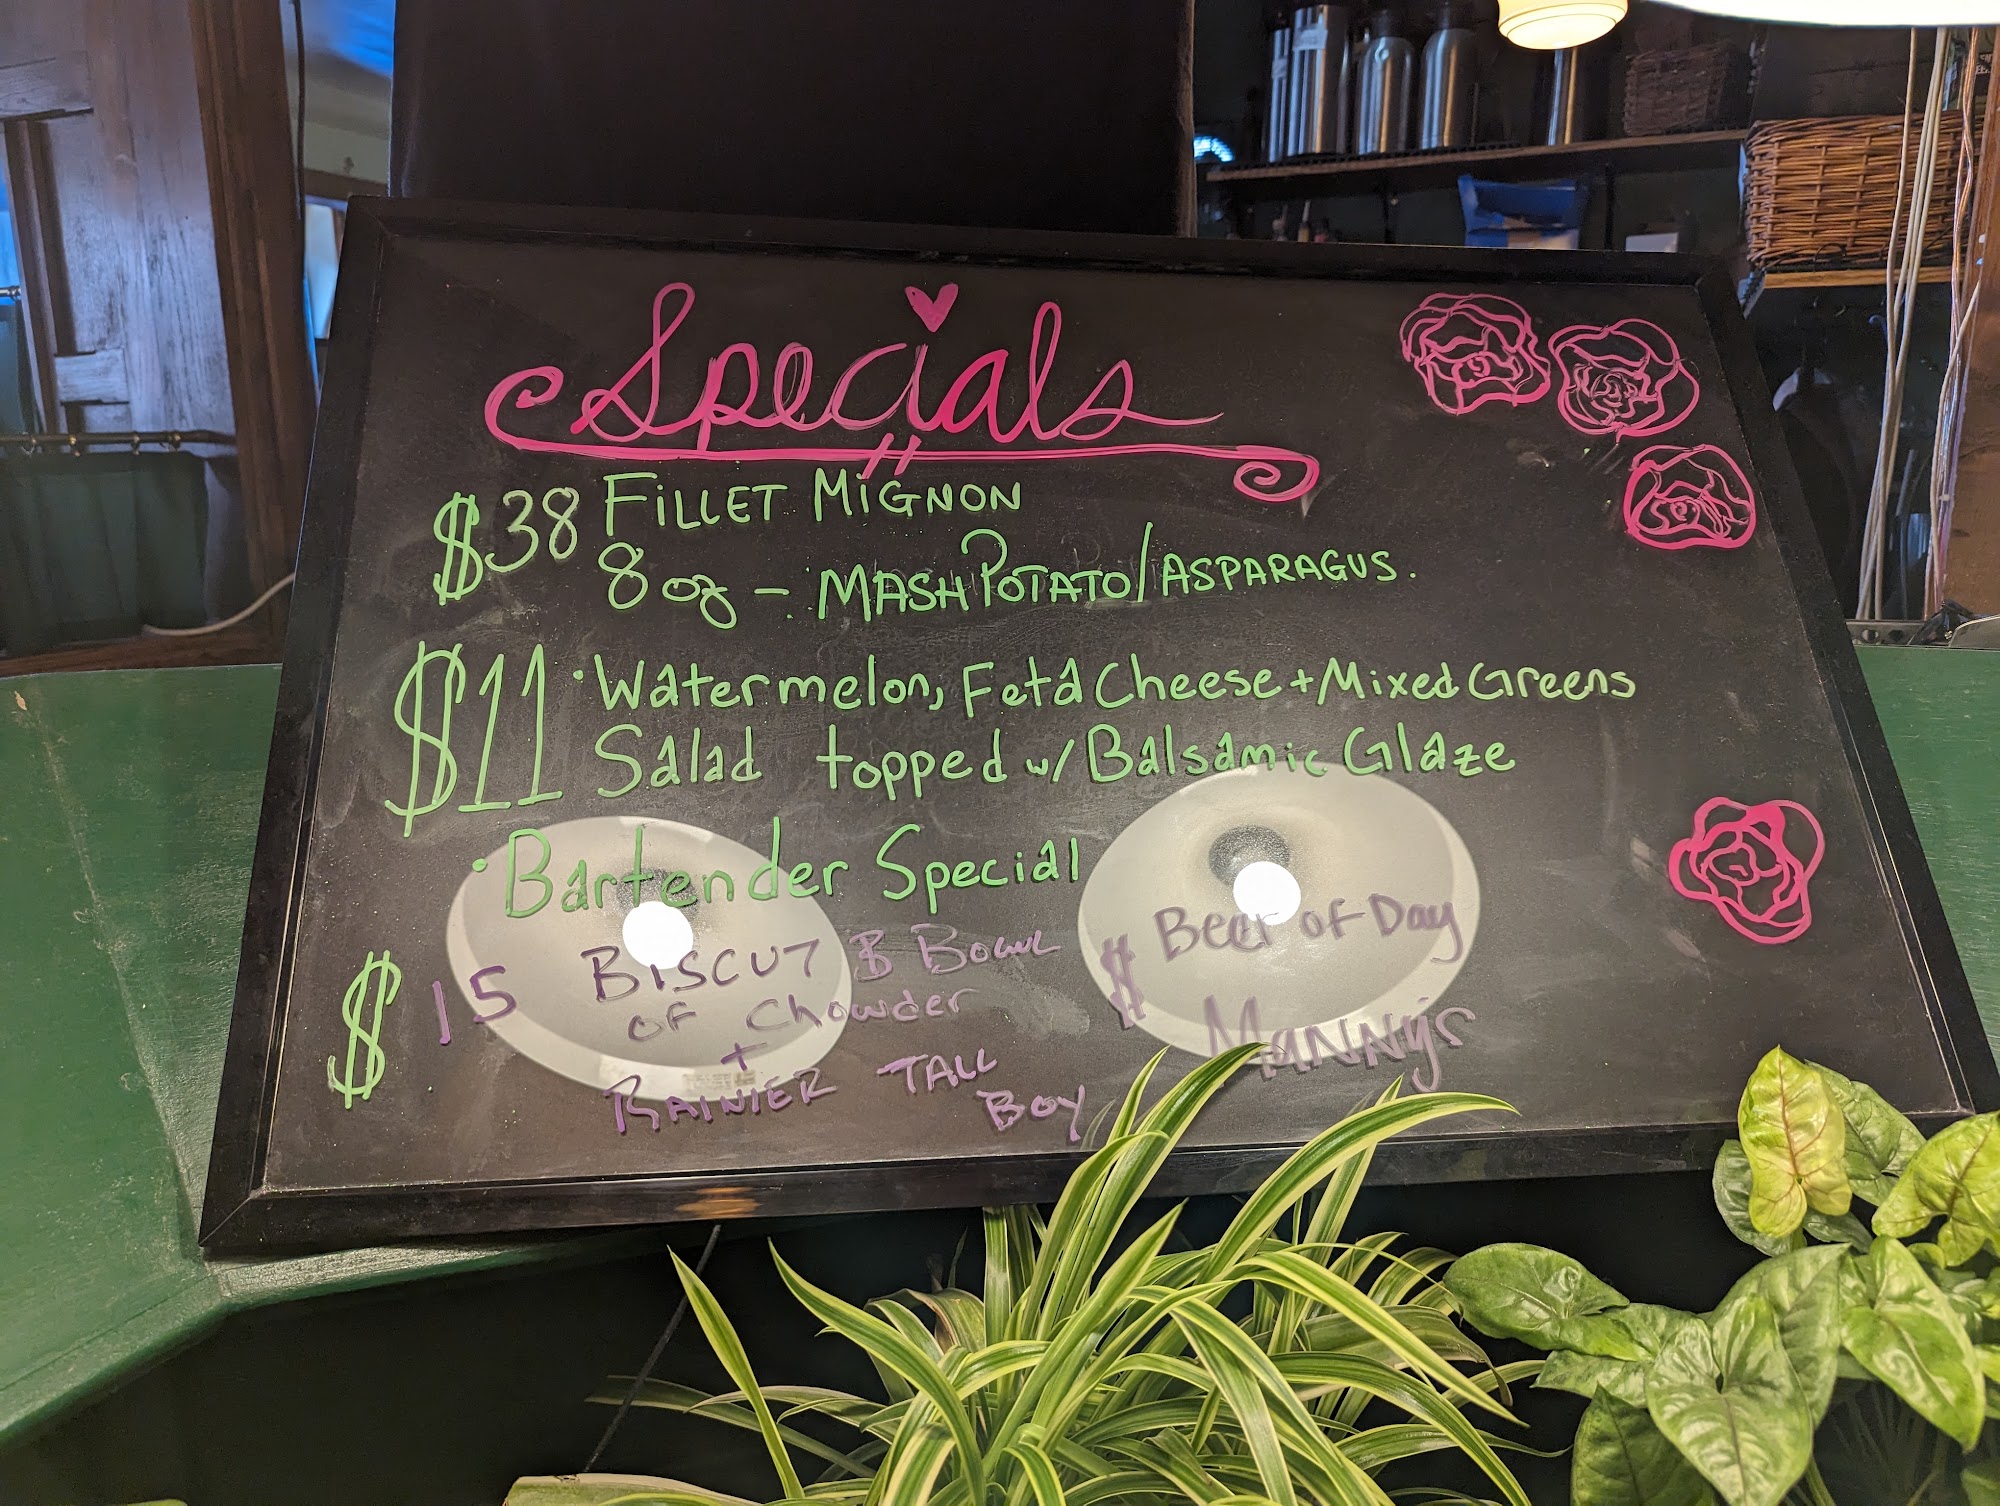 Specials
$38 FiLLET MiGNON
8oz - MASH POTATO/ASPARAGUS.
$11 · Watermelon, Feta Cheese + Mixed Greens
Salad topped w/ Balsamic Glaze
· Bartender Special
$15 BISCUT B BOWL
OF Chowder
+
RAINIER TALL
BOY
$ Beer of Day
MANNY'S